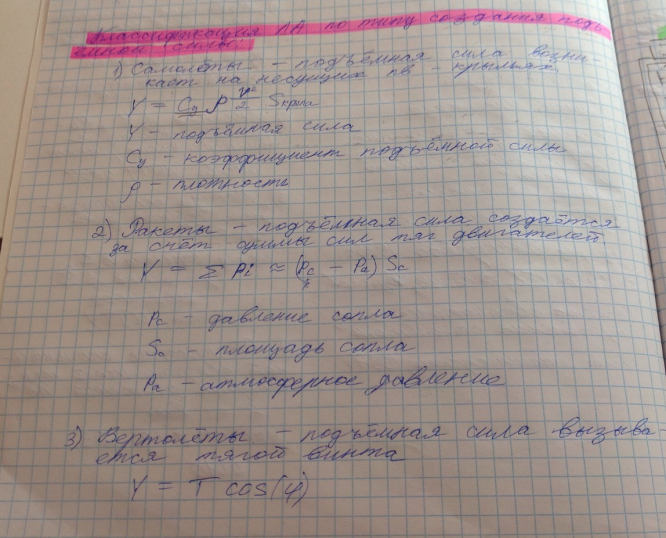 Классификация ЛА по типу создания подъ
ёмной силы
1) Самолёты – подъёмная сила возни-
кает на несущих пв – крыльях
Y = Cy ρ V²/2 Sкрыла
Y – подъёмная сила
Cy – коэффициент подъёмной силы
ρ – плотность
2) Ракеты – подъёмная сила создаётся
за счёт суммы сил тяг двигателей
Y = Σ Pi ≈ (Pc – Pa) Sc
Pc – давление сопла
Sc – площадь сопла
Pa – атмосферное давление
3) Вертолёты – подъёмная сила вызыва-
ется тягой винта
Y = T cos(φ)